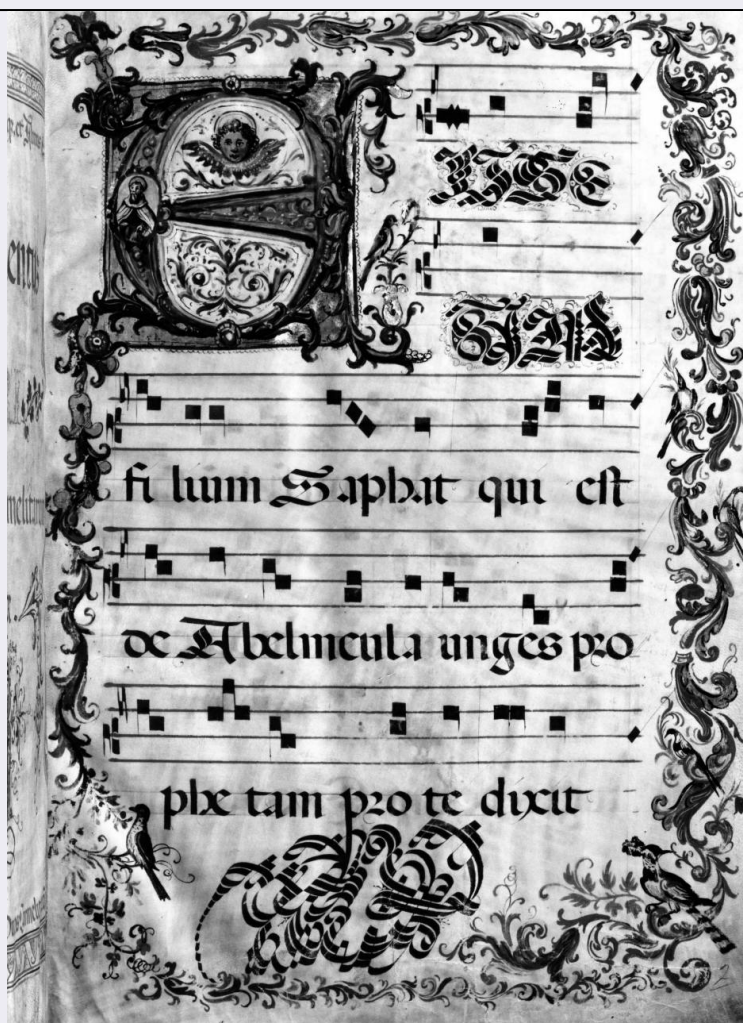 ELISE
UM
fi lium Saphat qui est
de Abelmeula unges pro
phe tam pro te dixit